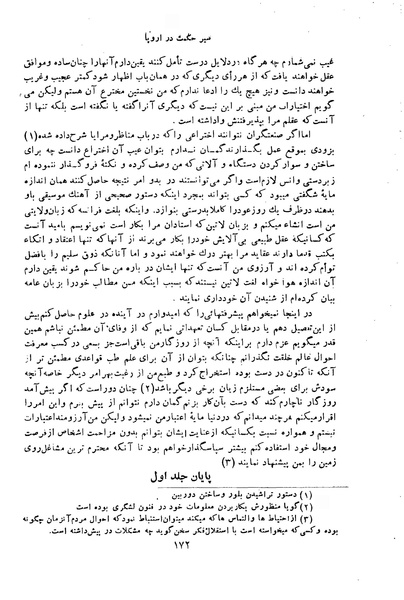 سیر حکمت در اروپا
عیب نمی‌شمارم چه هرگاه در دلایل درست تأمل کنند یقین دارم آنها را چنان ساده و موافق
عقل خواهند یافت که از هر رأی دیگری که در همان باب اظهار شود کمتر عجیب و غریب
خواهند دانست و نیز هیچ یك را ادعا ندارم که من نخستین مخترع آن هستم ولیکن می
گویم اختیارات من مبنی بر این نیست که دیگری آنرا گفته یا نگفته است بلکه تنها از
آنست که عقلم مرا بپذیرفتنش واداشته است .
اما اگر صنعتگران نتوانند اختراعی را که در باب مناظر و مرایا شرح داده شده (۱)
بزودی بموقع عمل بگذارند گمان ندارم بتوان عیب آن اختراع دانست چه برای
ساختن و سوار کردن دستگاه و آلاتی که من وصف کرده و نکتهٔ فروگذار ننموده ام
زبردستی و انس لازم است و اگر می‌توانستند در بدو امر نتیجه حاصل کنند همان اندازه
مایهٔ شگفتی میبود که کسی بتواند بمجرد اینکه دستور صحیحی از آهنك موسیقی باو
بدهند در ظرف یك روز عود را کاملا بدرستی بنوازد. و اینکه بلغت فرانسه که زبان ولایتی
من است انشاء میکنم و بزبان لاتین که استادان مرا بکار است نمی‌نویسم بامید آنست
که کسانیکه عقل طبیعی بی‌آلایش خود را بکار می‌برند از آنها که تنها اعتقاد و اتکاء
بکتب قدما دارند عقاید مرا بهتر درك خواهند نمود و اما آنانکه ذوق سلیم را بافضل
توأم کرده اند و آرزوی من آنست که تنها ایشان در باره من حاکم شوند یقین دارم
آن اندازه هواخواه لغت لاتین نیستند که بسبب اینکه من مطالب خود را بزبان عامه
بیان کرده‌ام از شنیدن آن خودداری نمایند .
در اینجا نمیخواهم پیشرفتهائی را که امیدوارم در آینده در علوم حاصل کنم بیش
از این تفصیل دهم یا در مقابل کسان تعهداتی نمایم که از وفای آن مطمئن نباشم همین
قدر میگویم عزم دارم براینکه آنچه از روزگارمن باقی است جز بسعی در کسب معرفت
احوال عالم خلقت نگذرانم چنانکه بتوان از آن برای علم طب قواعدی مطمئن تر از
آنکه تاکنون در دست بوده استخراج کرد و طبع من از رغبت بهر امر دیگر خاصه آنچه
سودش برای بعضی مستلزم زیان برخی دیگر باشد (۲) چنان دور است که اگر پیش آمد
روزگار ناچارم کند که دست بآن کار بزنم گمان دارم نتوانم از پیش ببرم و این امر را
اقرار میکنم هرچند میدانم که در دنیا مایهٔ اعتبار من نمیشود ولیکن من آرزومند اعتبارات
نیستم و همواره نسبت بکسانیکه از عنایت ایشان بتوانم بدون مزاحمت اشخاص از فرصت
و مجال خود استفاده کنم بیشتر سپاسگذار خواهم بود تا آنکه محترم ترین مشاغل روی
زمین را بمن پیشنهاد نمایند (۳)
پایان جلد اول
(۱) دستور تراشیدن بلور و ساختن دوربین
(۲) گویا منظورش بکار بردن معلومات خود در فنون لشگری بوده است
(۳) از احتیاط ها و التماس ها که میکند میتوان استنباط نمود که احوال مردم آنزمان چگونه
بوده و کسی که میخواسته است با استقلال فکر سخن گوید چه مشکلات در پیش داشته است .
۱۷۲